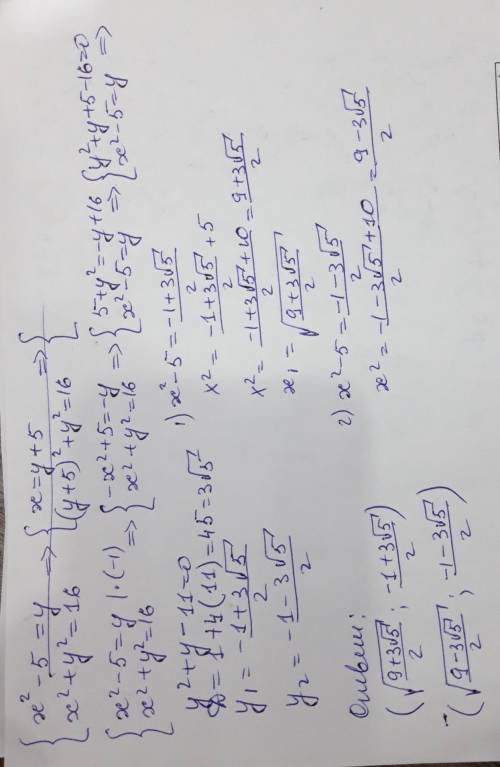 {x² - 5 = y => {x = y + 5 => {
{x² + y² = 16 {(y+5)² + y² = 16
{x² - 5 = y | · (-1) => {-x² + 5 = -y => {5 + y² = -y + 16 => {y² + y + 5 - 16 = 0
{x² + y² = 16 {x² + y² = 16 {x² - 5 = y {x² - 5 = y =>
y² + y - 11 = 0
D = 1 + 4(11) = 45 = 3√5
y₁ = (-1 + 3√5)/2
y₂ = (-1 - 3√5)/2
1) x² - 5 = (-1 + 3√5)/2
x² = (-1 + 3√5)/2 + 5
x² = (-1 + 3√5 + 10)/2 = (9 + 3√5)/2
x₁ = √((9 + 3√5)/2)
2) x² - 5 = (-1 - 3√5)/2
x² = (-1 - 3√5 + 10)/2 = (9 - 3√5)/2
Ответ:
(√((9 + 3√5)/2) ; (-1 + 3√5)/2)
(√((9 - 3√5)/2) ; (-1 - 3√5)/2)